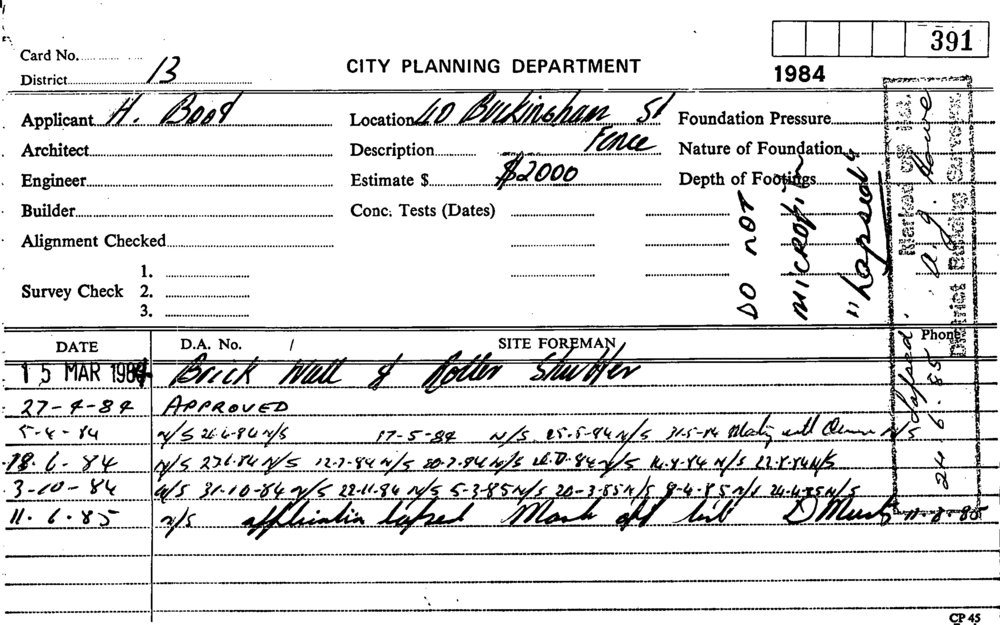 391
Card No.
District 13
CITY PLANNING DEPARTMENT
1984
Applicant H. Boot
Location 40 Buckingham St
Foundation Pressure
Architect
Description Fence
Nature of Foundation
Engineer
Estimate $ $2000
Depth of Footings
Builder
Conc. Tests (Dates)
Alignment Checked
Survey Check
1.
2.
3.
DO NOT
MICROFILM
"Lapsed"
Marked off Ind.
A. J. Howe
District Building Surveyor
Lapsed.
24.6.85
DATE
D.A. No. /
SITE FOREMAN
Phone
15 MAR 1984 Brick Wall & Roller Shutter
27-4-84 APPROVED
5-4-84 N/S 26-4-84 N/S 17-5-84 N/S 25-5-84 N/S 31-5-84 Meeting with Owner N/S
18.6.84 N/S 27.6.84 N/S 12-7-84 N/S 20-7-84 N/S N/S 14-8-84 N/S 22-8-84 N/S
3-10-84 N/S 31-10-84 N/S 22-11-84 N/S 5-3-85 N/S 20-3-85 N/S 9-4-85 N/S 24-4-85 N/S
11.6.85 N/S application lapsed Mark off list
CP 45